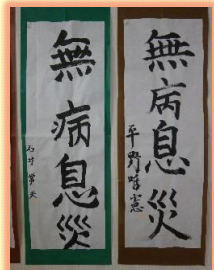 無病息災
平野
無病息災